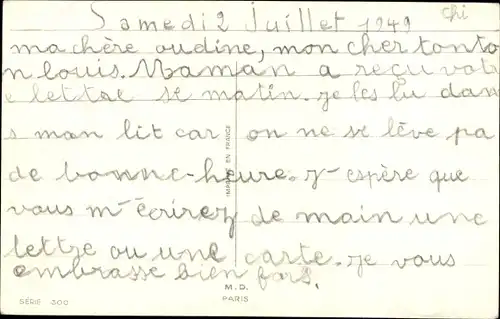 Samedi 2 Juillet 1949
chi
ma chère oudine, mon cher tonto
n louis. Maman a reçu votr
e lettre se matin. je les lu dan
s mon lit car on ne se lève pa
de bonne-heure. j'espère que
vous m'écrirez de main une
lettre ou une carte. je vous
embrasse bien fors.
IMPRIMÉ EN FRANCE
M. D.
SÉRIE 300
PARIS